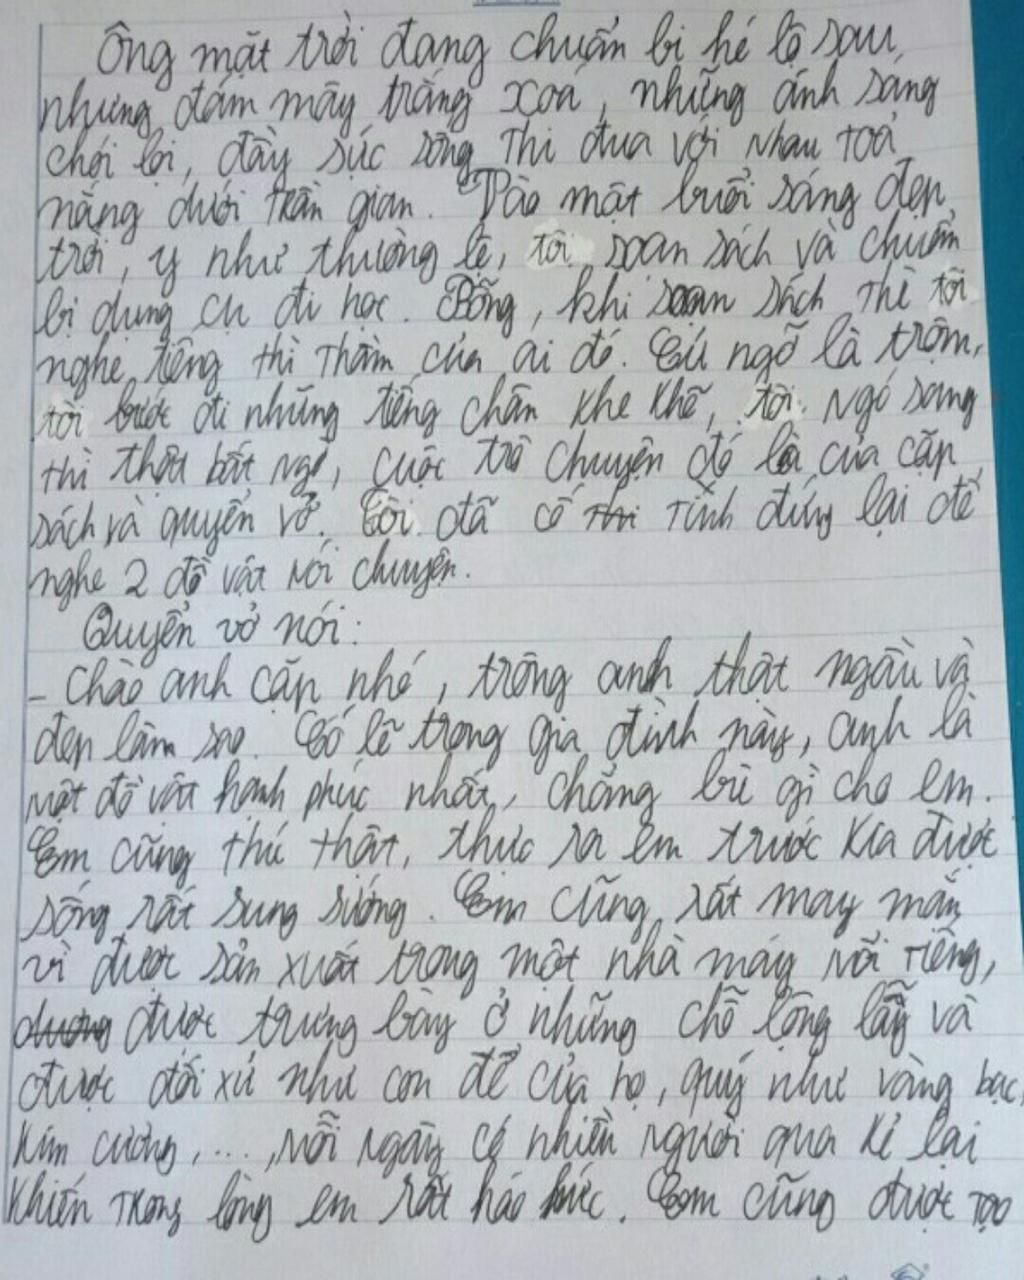 Ông mặt trời đang chuẩn bị hé lộ sau
những đám mây trắng xoá, những ánh sáng
chói lọi, đầy sức sống thi đua với nhau toả
nắng dưới trần gian. Vào một buổi sáng đẹp
trời, y như thường lệ, tôi soạn sách và chuẩn
bị dụng cụ đi học. Bỗng, khi soạn sách thì tôi
nghe tiếng thì thầm của ai đó. Cứ ngỡ là trộm,
tôi bước đi những tiếng chân khe khẽ, tôi ngó sang
thì thật bất ngờ, cuộc trò chuyện đó là của cặp
sách và quyển vở. Tôi đã cố thi tình đứng lại để
nghe 2 đồ vật nói chuyện.
Quyển vở nói:
- Chào anh cặp nhé, trông anh thật ngầu và
đẹp làm sao. Có lẽ trong gia đình này, anh là
một đồ vật hạnh phúc nhất, chẳng bù gì cho em.
Em cũng thú thật, thực ra em trước kia được
sống rất sung sướng. Em cũng rất may mắn
vì được sản xuất trong một nhà máy nổi tiếng,
được trưng bày ở những chỗ lộng lẫy và
được đối xử như con đẻ của họ, quý như vàng bạc,
kim cương,..., mỗi ngày có nhiều người qua kẻ lại
khiến trong lòng em rất háo hức. Em cũng được tạo